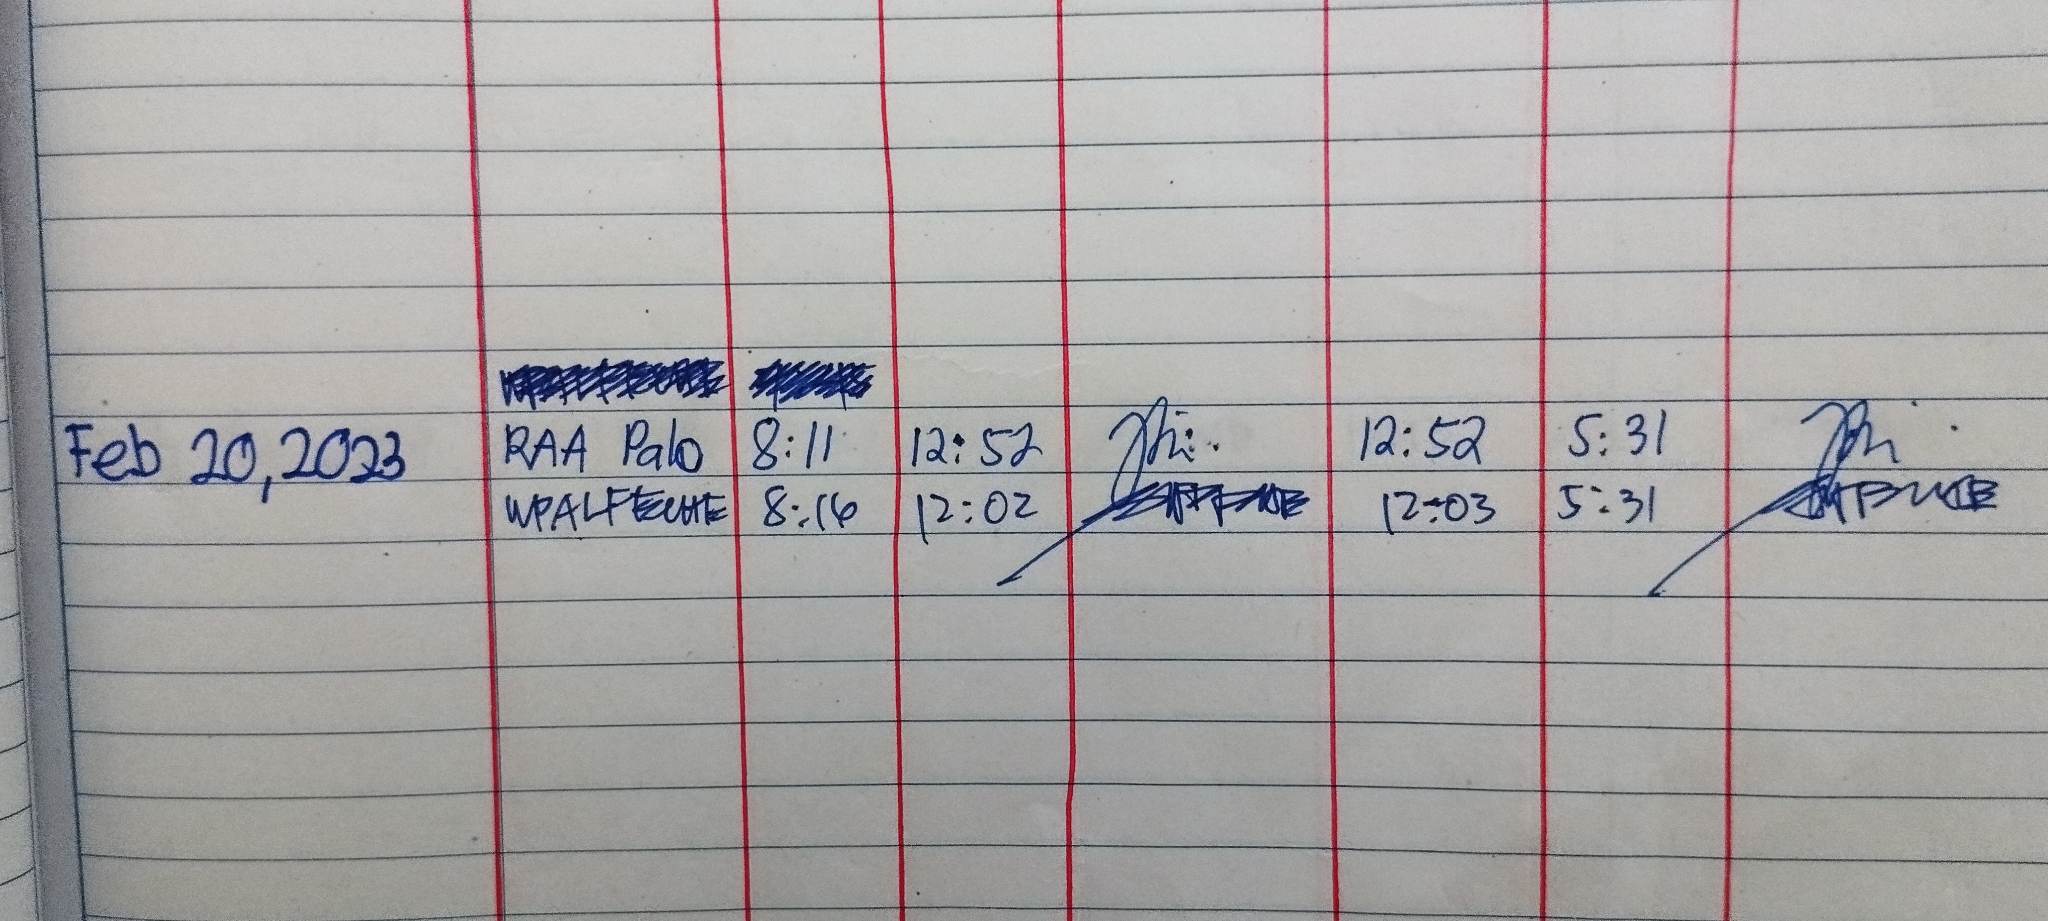 Feb 20, 2023 RAA Palo 8:11 12:52 12:52 5:31
WPALFECHE 8:16 12:02 12:03 5:31